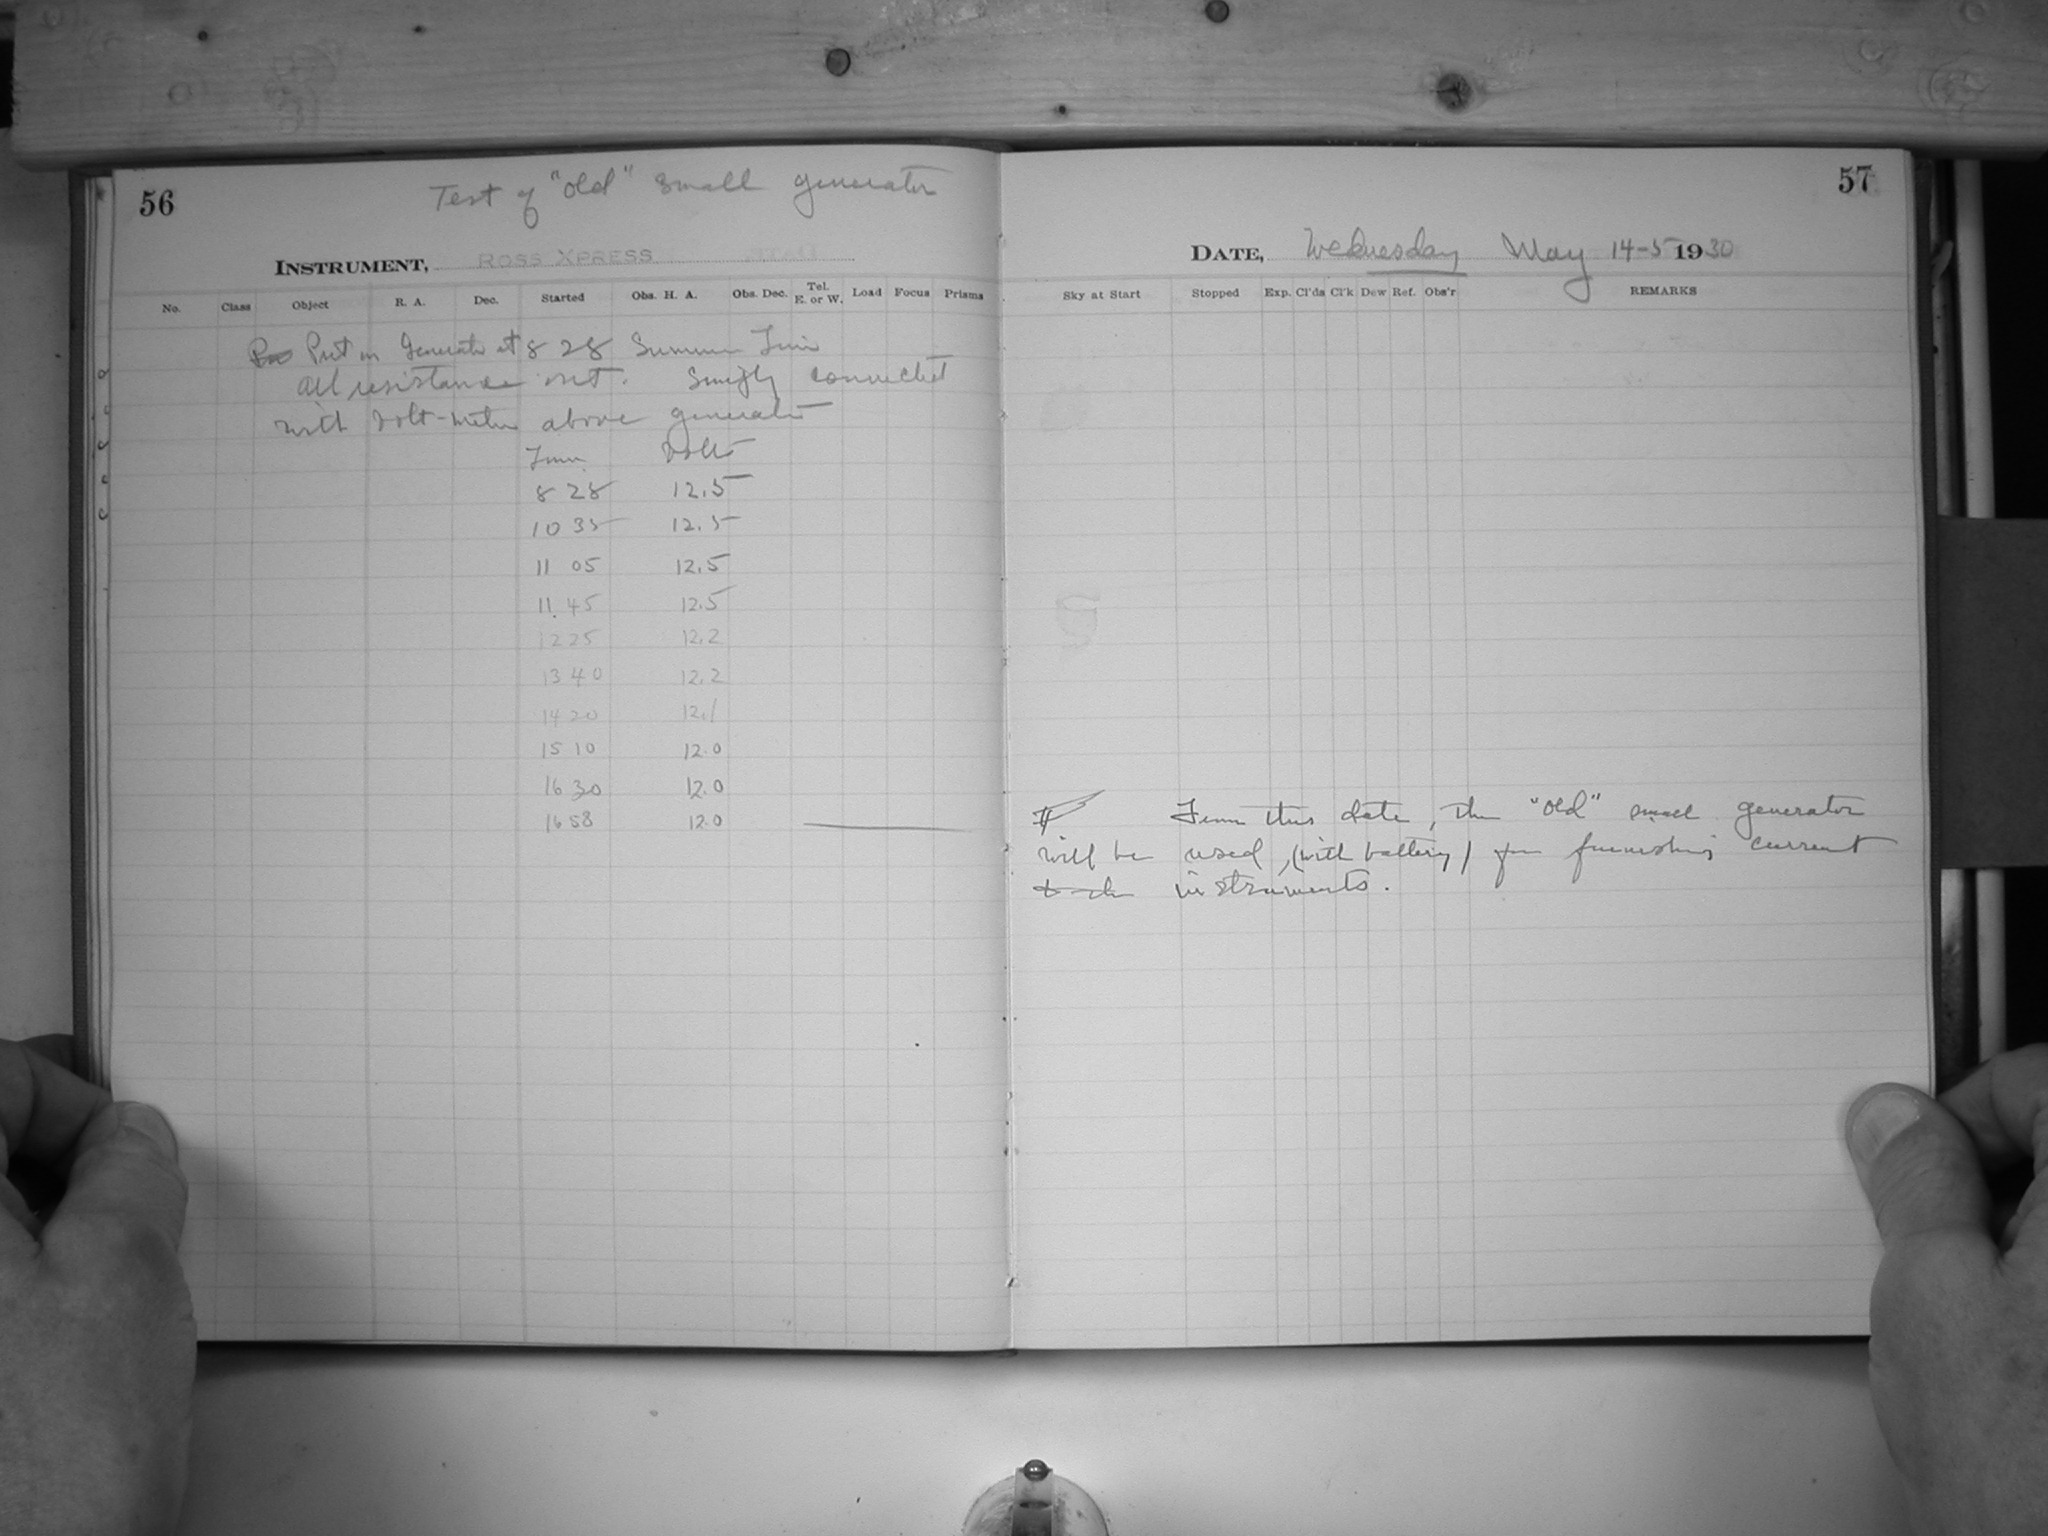 56
Test of "old" small generator
INSTRUMENT, ROSS XPRESS
No. Class Object R. A. Dec. Started Obs. H. A. Obs. Dec. Tel. E. or W. Load Focus Prisms
Put on Generator at 8 28 Summer Time
all resistance out. Simply connected
with volt-meter above generator
Time Volts
8 28 12.5
10 35 12.5
11 05 12.5
11.45 12.5
12 25 12.2
13 40 12.2
14 20 12.1
15 10 12.0
16 30 12.0
16 58 12.0
57
DATE, Wednesday May 14-5 1930
Sky at Start Stopped Exp. Cl'ds Cl'k Dew Ref. Obs'r REMARKS
From this date, the "old" small generator
will be used, (with battery) for furnishing current
to the instruments.